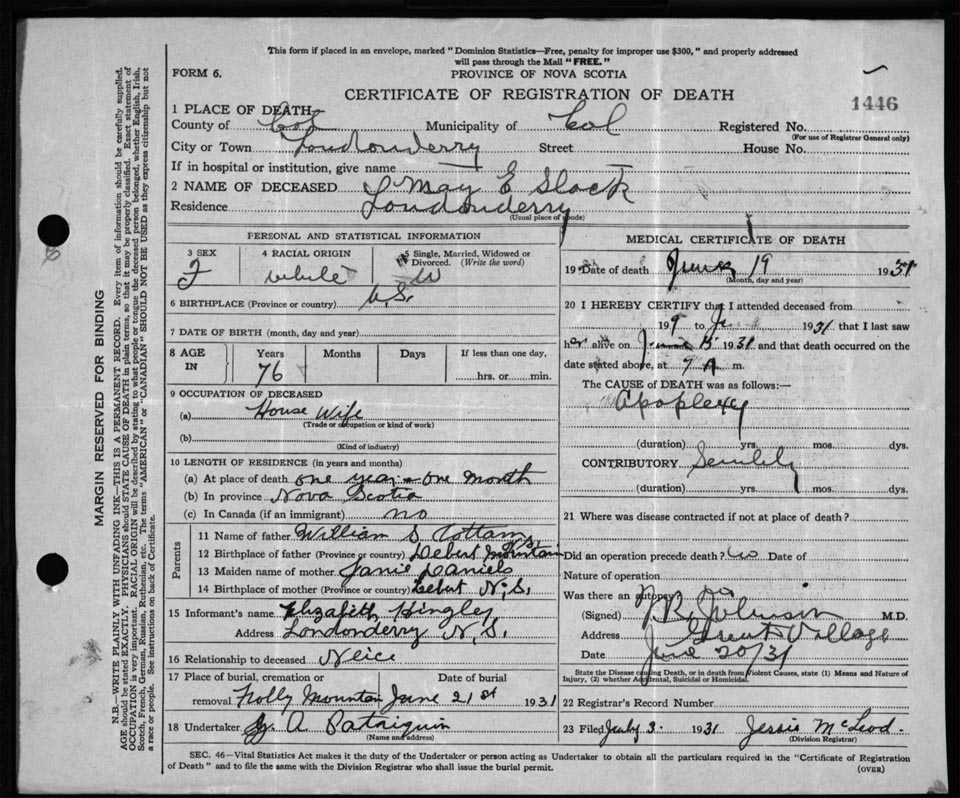 This form if placed in an envelope, marked "Dominion Statistics—Free, penalty for improper use $300," and properly addressed
will pass through the Mail "FREE."
FORM 6.
PROVINCE OF NOVA SCOTIA
CERTIFICATE OF REGISTRATION OF DEATH
1446
1 PLACE OF DEATH
County of Col Municipality of Col Registered No.
(For use of Registrar General only)
City or Town Londonderry Street House No.
If in hospital or institution, give name
2 NAME OF DECEASED May E Slack
Residence Londonderry
(Usual place of abode)
PERSONAL AND STATISTICAL INFORMATION
3 SEX F
4 RACIAL ORIGIN white
5 Single, Married, Widowed or Divorced. (Write the word) W
6 BIRTHPLACE (Province or country)
7 DATE OF BIRTH (month, day and year)
8 AGE IN Years 76 Months Days If less than one day, hrs. or min.
9 OCCUPATION OF DECEASED
(a) House Wife
(Trade or occupation or kind of work)
(b)
(Kind of industry)
10 LENGTH OF RESIDENCE (in years and months)
(a) At place of death one year one month
(b) In province Nova Scotia
(c) In Canada (if an immigrant) no
Parents
11 Name of father William S Cottam
12 Birthplace of father (Province or country) Debert Mountain
13 Maiden name of mother Janie Daniels
14 Birthplace of mother (Province or country) Debert N.S.
15 Informant's name Elizabeth Hingley
Address Londonderry N.S.
16 Relationship to deceased Niece
17 Place of burial, cremation or Date of burial
removal Folly Mountain June 21st 1931
18 Undertaker A
(Name and address)
MEDICAL CERTIFICATE OF DEATH
19 Date of death June 19 1931
(Month, day and year)
20 I HEREBY CERTIFY that I attended deceased from
19 to June 1931 that I last saw
alive on June 1931 and that death occurred on the
date stated above, at 9 A m.
The CAUSE OF DEATH was as follows:—
Apoplexy
(duration) yrs. mos. dys.
CONTRIBUTORY Senility
(duration) yrs. mos. dys.
21 Where was disease contracted if not at place of death?
Did an operation precede death? Date of
Nature of operation
Was there an autopsy
(Signed) R. Johnson M.D.
Address Great Village
Date June 20/31
State the Disease causing Death, or in death from Violent Causes, state (1) Means and Nature of
Injury, (2) whether Accidental, Suicidal or Homicidal.
22 Registrar's Record Number
23 Filed July 3. 1931 Jessie McLeod.
(Division Registrar)
SEC. 46—Vital Statistics Act makes it the duty of the Undertaker or person acting as Undertaker to obtain all the particulars required in the "Certificate of Registration
of Death" and to file the same with the Division Registrar who shall issue the burial permit.
(OVER)
MARGIN RESERVED FOR BINDING
N.B.—WRITE PLAINLY WITH UNFADING INK—THIS IS A PERMANENT RECORD. Every item of information should be carefully supplied.
AGE should be stated EXACTLY. PHYSICIANS should STATE CAUSE OF DEATH in plain terms, so that it may be properly classified. Exact statement of
OCCUPATION is very important. RACIAL ORIGIN will be described by stating to what people or tongue the deceased person belonged, whether English, Irish,
Scotch, French, German, Russian, Ruthenian, etc. The terms "AMERICAN" or "CANADIAN" SHOULD NOT BE USED as they express citizenship but not
a race or people. See instructions on back of Certificate.